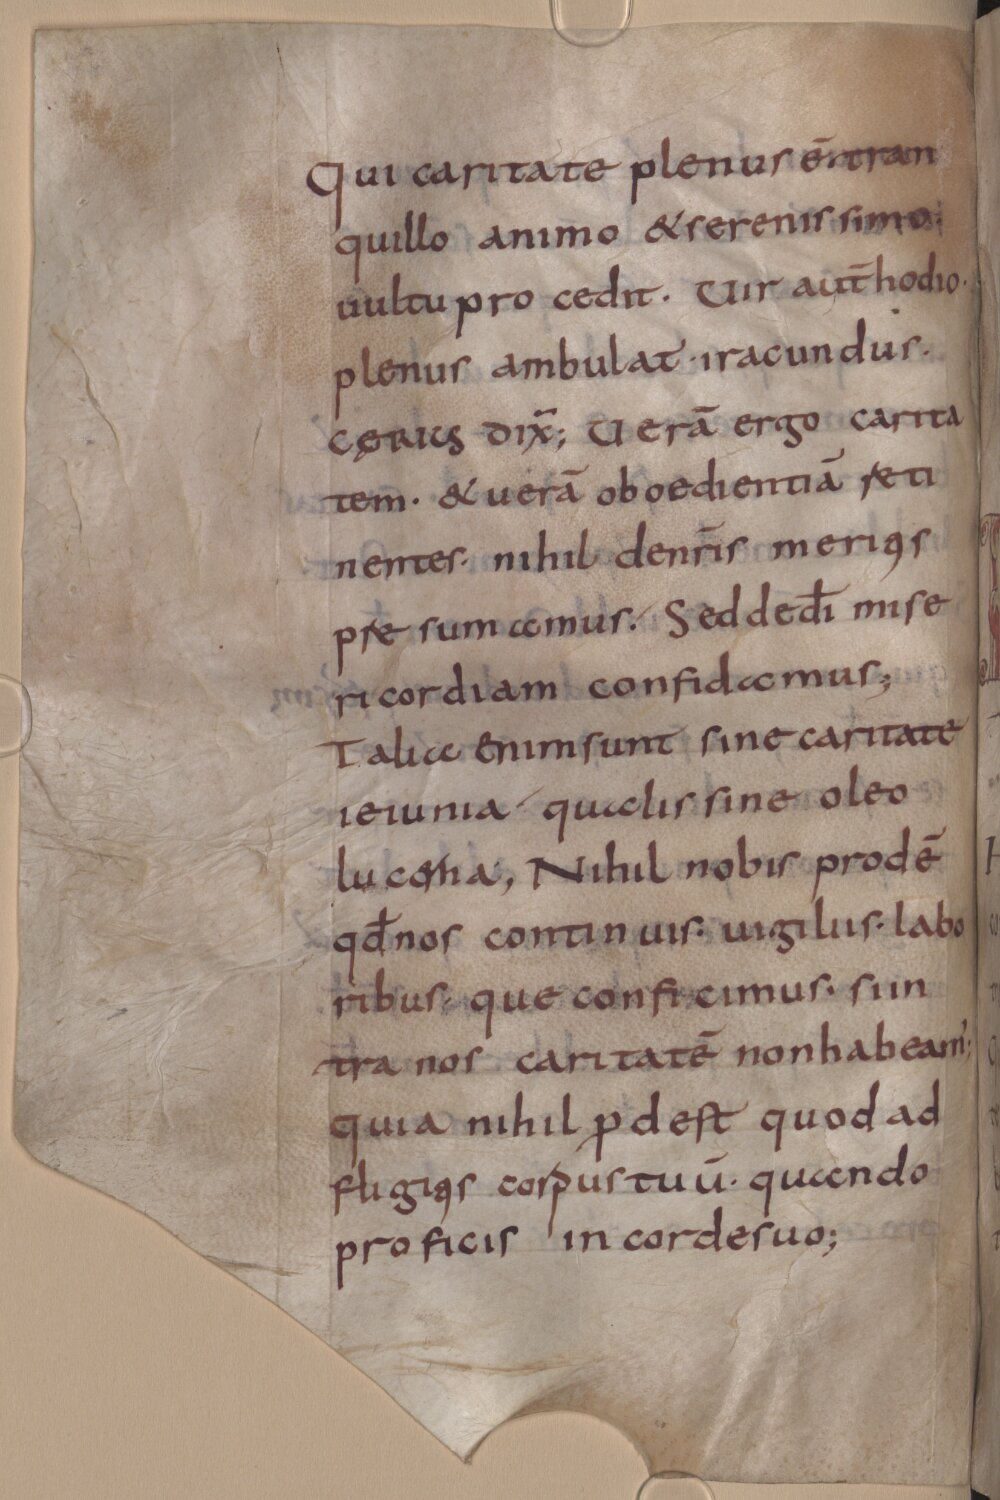 Qui caritate plenus ē· tran
quillo animo & serenissimo·
uultu pro cedit. Uir aut̄ hodio·
plenus ambulat· iracundus.
dix̄; Uerā ergo carita
tem. & uerā oboedientiā reti
nentes. nihil den̄ris
pre sumamus. Sed de dī mise
ricordiam confidamus;
Talia enim sunt sine caritate
ieiunia qualis sine oleo
lucerna, Nihil nobis prodē
qđ nos continuis· uigiliis· labo
ribus· que conficimus· si in
tra nos caritatē non habeam̄;
quia nihil ꝓdest quod ad
fligis corpus tuū. quando
proficis in corde suo;